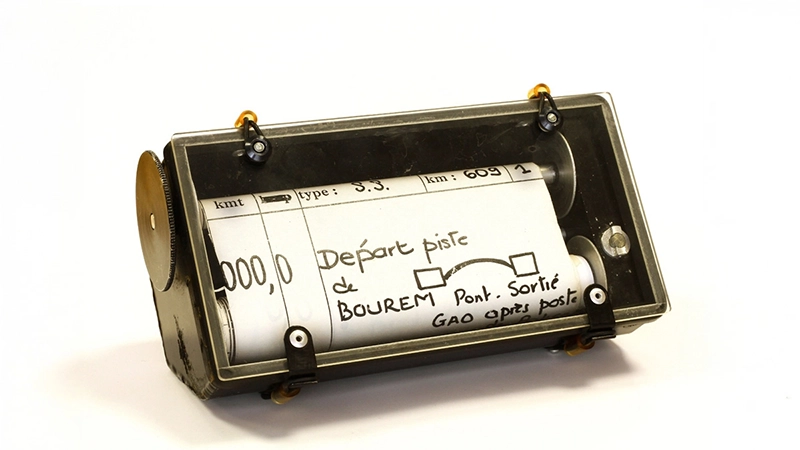 kmt type: S.S. km: 609 1
000,0 Départ piste
de
BOUREM Pont. Sortié
GAO après poste